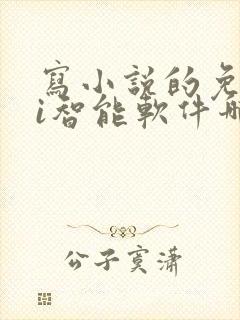 寫小說的免
i智能軟件哪
公子寞瀟